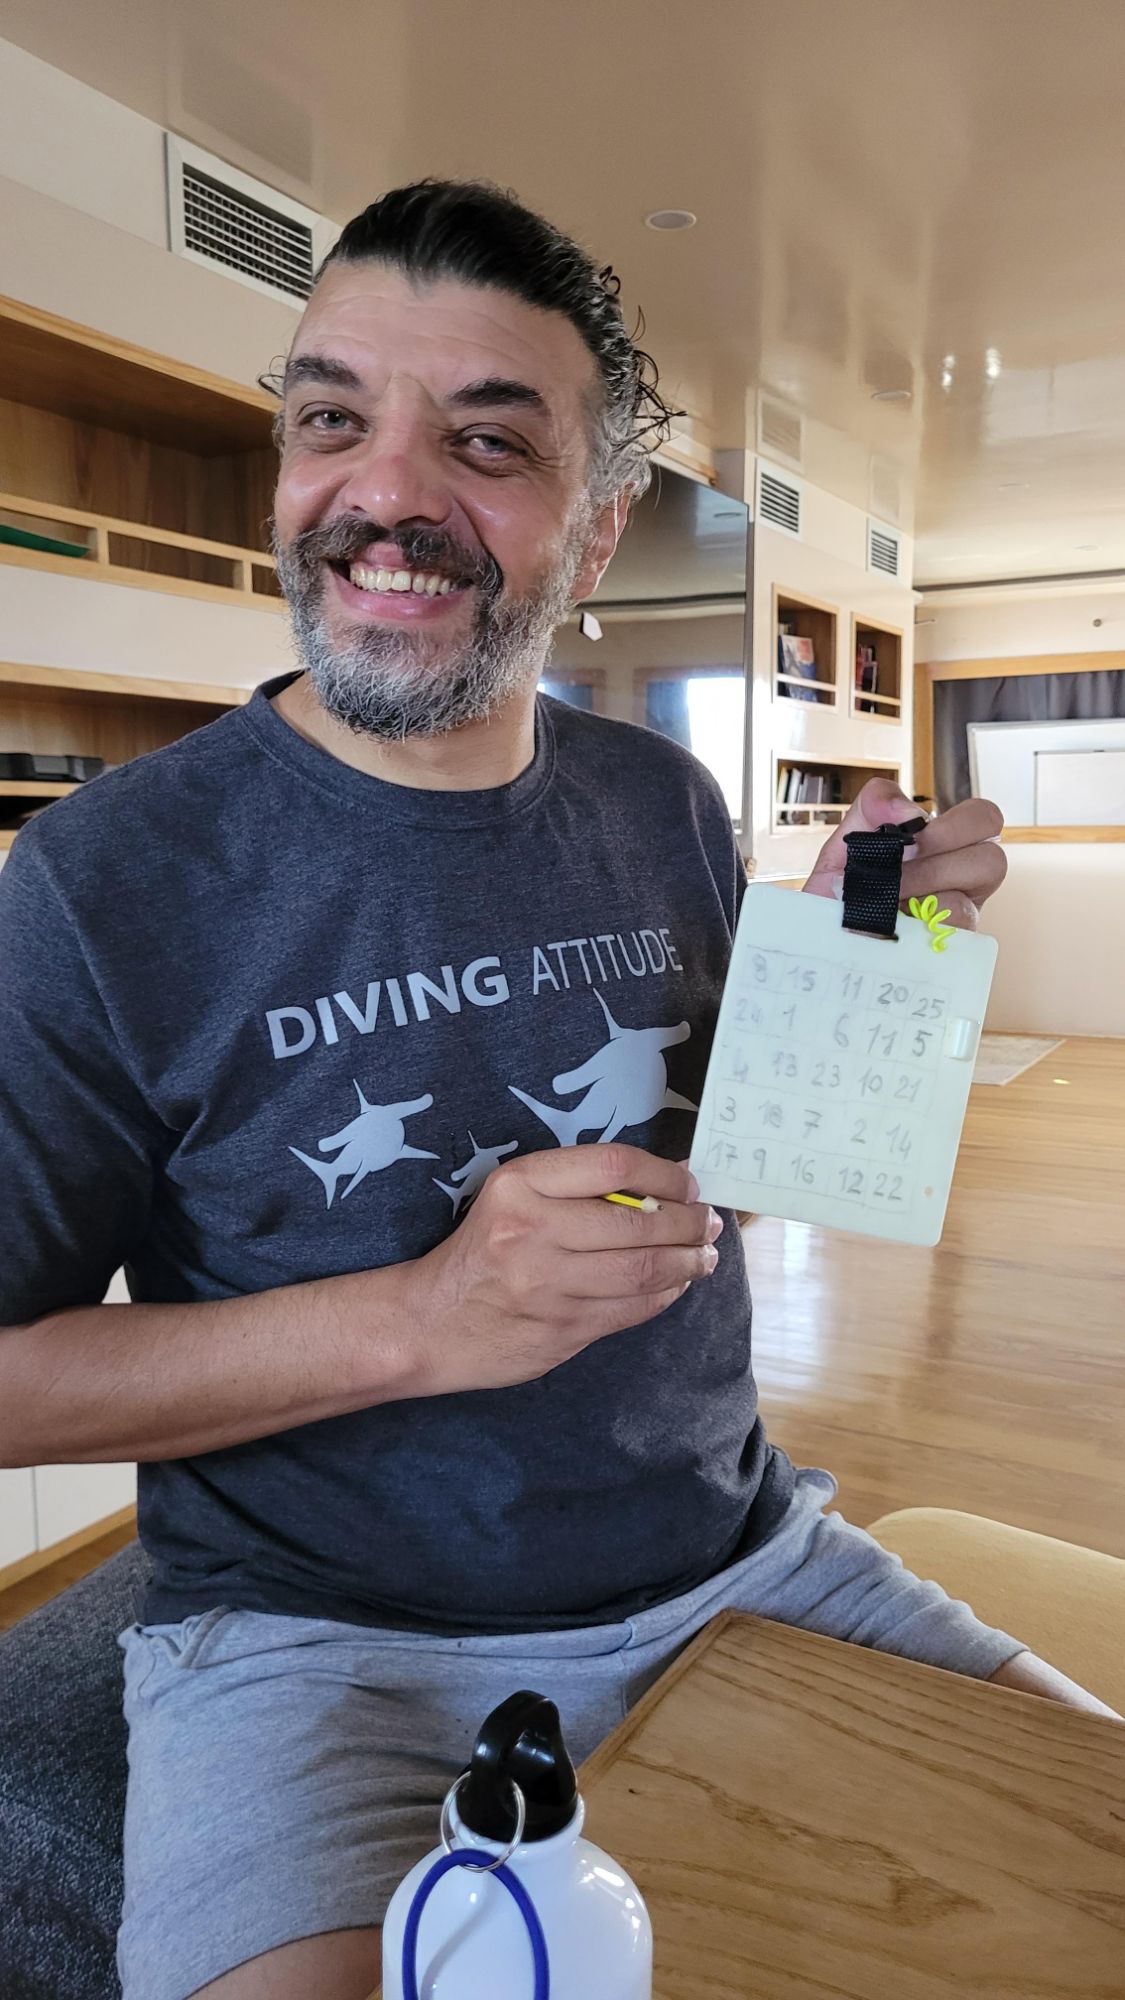 DIVING ATTITUDE
8 15 11 20 25
24 1 6 11 5
4 13 23 10 21
3 18 7 2 14
17 9 16 12 22